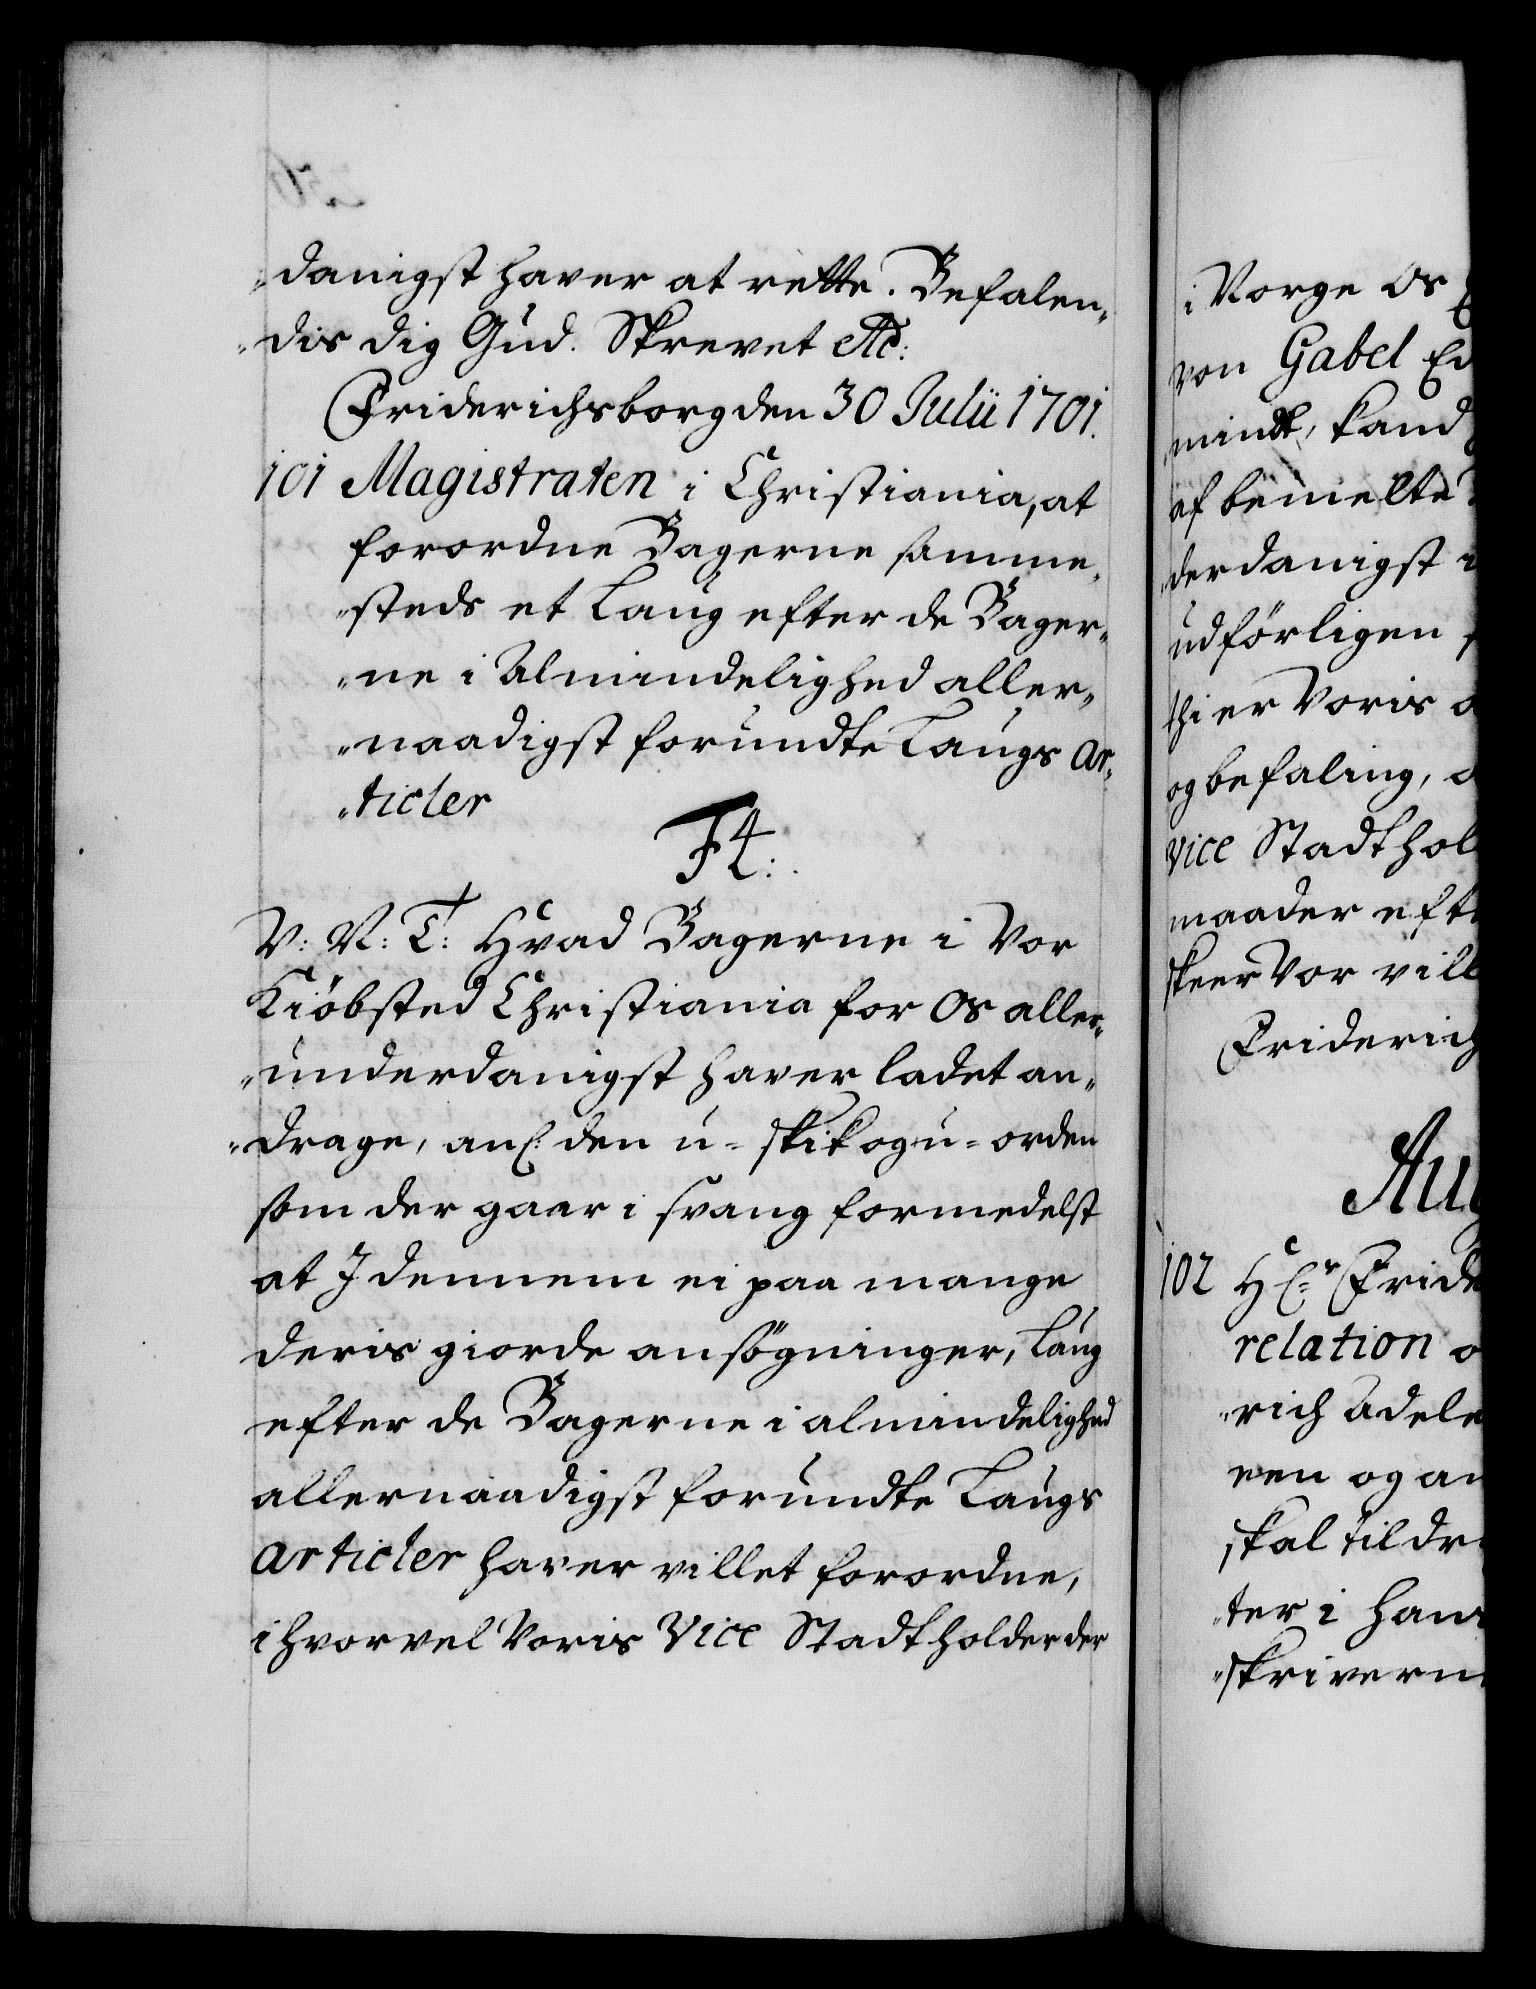 danigst haver at rette. Befalen„
„dis dig Gud. Skrevet etc:
Friderichsborg den 30 Julii 1701.
101 Magistraten i Christiania, at
forordne Bagerne samme„
„steds et Laug efter de Bager„
„ne i Almindelighed aller„
„naadigst forundte Laugs Ar„
„ticler
F4:
V: V: T: Hvad Bagerne i Vor
Kiöbsted Christiania for Os aller„
„underdanigst haver ladet an„
„drage, anl: den u-skik og u-orden
som der gaar i svang formedelst
at I dennem ei paa mange
deris giorde ansögninger, Laug
efter de Bagerne i almindelighed
allernaadigst forundte Laugs
Articler haver villet forordne,
ihvorvel Voris Vice Stadtholder der
i Norge Os
von Gabel
mindt, kand
af bemelte
„derdanigst
udförligen
thi er Voris
og befaling,
Vice Stadthol
maader efte
skeer Vor vill
Friderich
Aug
102 Hr. Fride
relation
„rich Adele
een og an
skal tildr
„ter i hans
„skrivern